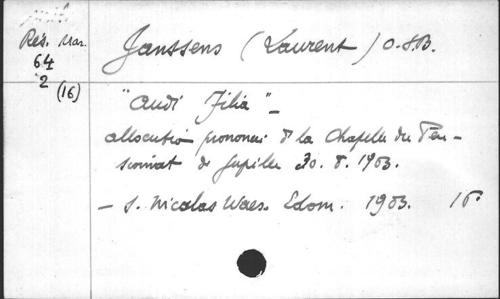 Rés. Mar.
64
2
(16)
Janssens (Laurent) O.S.B.
"Audi Filia" –
allocution prononcée à la Chapelle du Pen-
sionnat de Jupille 30. 8. 1903.
– S. Nicolas Waes. Edom. 1903. 16°